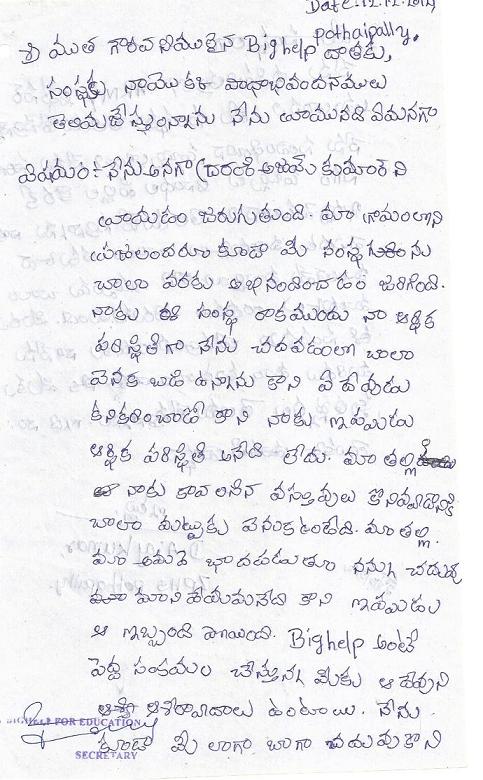 Date: 12.12.2014
pothaipally,
శ్రీ మాత గౌరవనీయులైన Bighelp దాతకు,
సంస్థకు నాయొక్క పాదాభివందనములు
తెలియజేస్తున్నాను నేను వ్రాయునది ఏమనగా
విషయం:- నేను అనగా (దరంకి అజయ్ కుమార్ ని
వ్రాయడం జరుగుతుంది. మా గ్రామంలోని
ప్రజలందరూ కూడా మీ సంస్థను
చాలా వరకు అభినందించడం జరిగింది.
నాకు ఈ సంస్థ రాకముందు నా ఆర్థిక
పరిస్థితిగా నేను చదవడంలో చాలా
వెనక బడి ఉన్నాను కాని ఏ దేవుడు
కనికరించాడో కాని నాకు ఇప్పుడు
ఆర్థిక పరిస్థితి అనేది లేదు. మా తల్లి
నాకు కావలసిన వస్తువులు కొనివ్వడానికి
చాలా మట్టుకు వెనుకఉంటేది. మా తల్లి.
మా అమ్మ బాధపడుతూ నన్ను చదువు
మానివేయమనేది కాని ఇప్పుడు
ఆ ఇబ్బంది పోయింది. Bighelp అంటే
పెద్ద సంకయం చేస్తున్న మీకు ఆ దేవుని
ఆశీర్వాదాలు ఉంటాయి. నేను
BIGHELP FOR EDUCATION
కూడా మీ లాగా బాగా చదువుకొని
SECRETARY